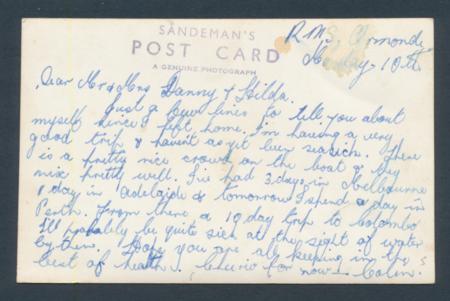 SANDEMAN'S
POST CARD
A GENUINE PHOTOGRAPH
R.M.S. Ormonde
Monday, 10th
Dear Mr & Mrs Danny & Hilda.
Just a few lines to tell you about
myself since I left home. I'm having a very
good trip & havent as yet been seasick. There
is a pretty nice crowd on the boat & they
mix pretty well. I've had 3 days in Melbourne
1 day in Adelaide & tomorrow I spend a day in
Perth. From there a 10 day trip to Colombo
I'll probably be quite sick at the sight of water
by then. Hope you are all keeping in the
best of health. Cheerio for now Colin.